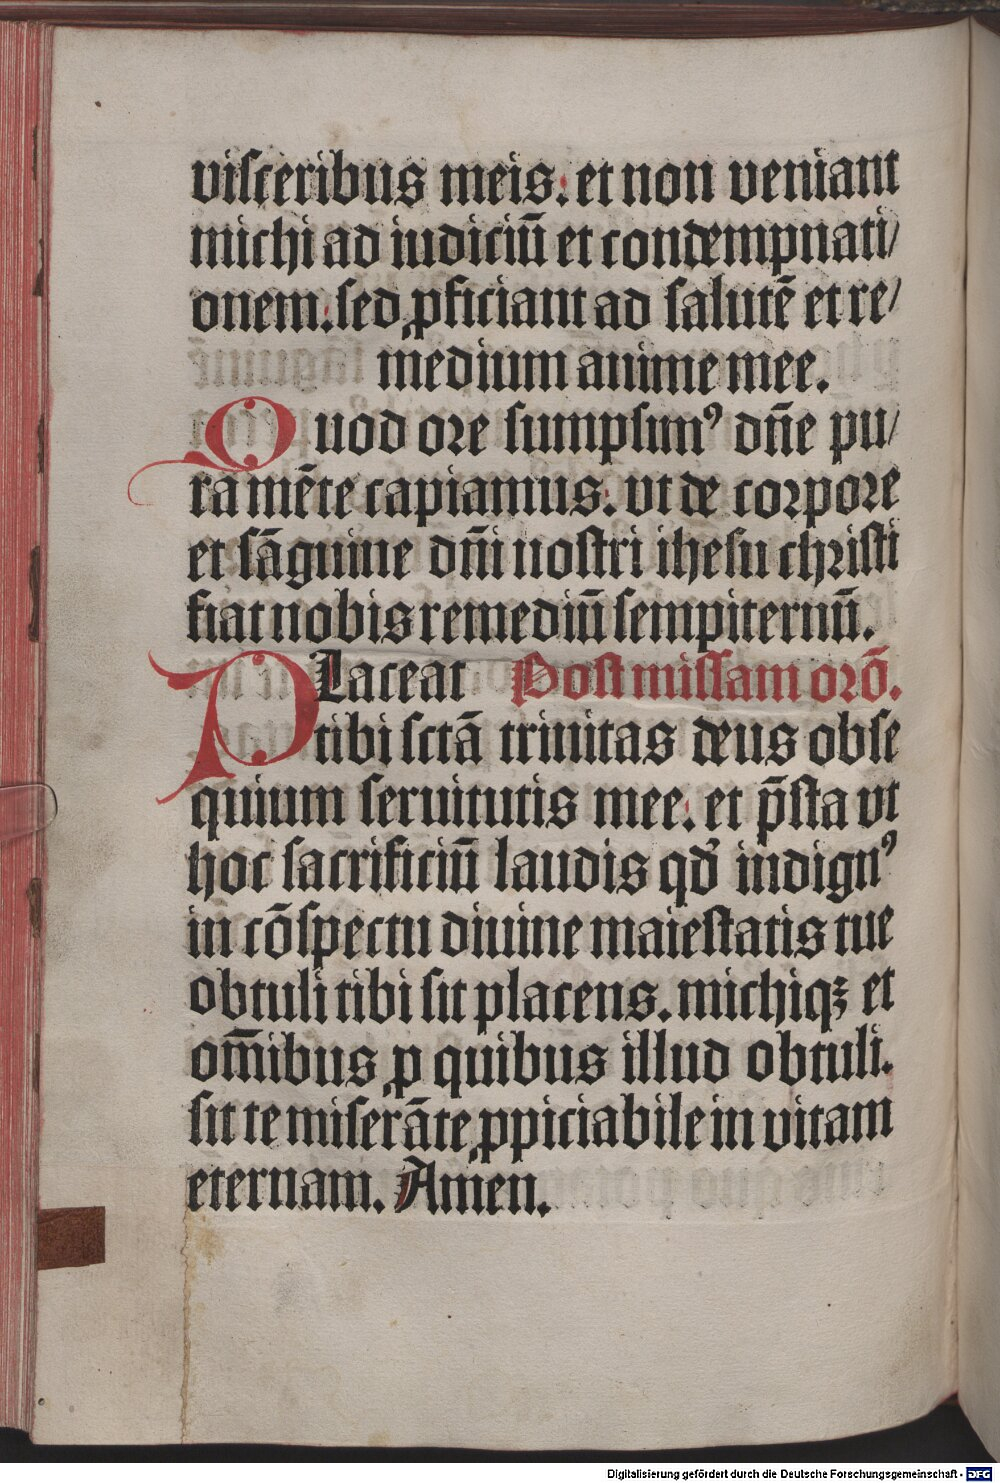 viſceribus meis. et non veniant
michi ad iudiciū et condempnati/
onem. ſed ꝓficiant ad ſalutē et re/
medium anime mee.
Quod ore ſumpſimꝰ dñe pu/
ra mēte capiamus. vt de corꝑore
et ſāguine dñi noſtri iheſu chriſti
fiat nobis remediū ſempiternū.
PLaceat Poſt miſſam orõ.
tibi ſctā trinitas deus obſe
quium ſeruitutis mee. et p̄ſta vt
hoc ſacrificiū laudis qđ indignꝰ
in cōſpectu diuine maieſtatis tue
obtuli tibi ſit placens. michiqꝫ et
om̄ibus ꝓ quibus illud obtuli.
ſit te miſerāte ꝓpiciabile in vitam
eternam. Amen.
Digitalisierung gefördert durch die Deutsche Forschungsgemeinschaft - DFG